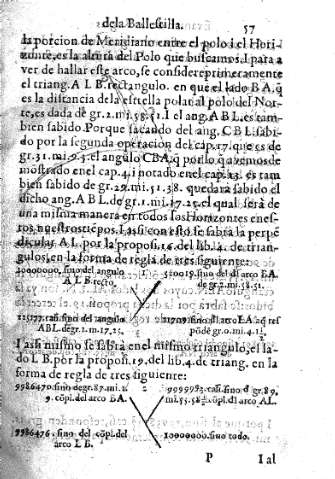 de la Ballestilla. 57
la porcion de Meridiano entre el polo i el Hori-
zonte, es la altura del Polo que buscamos. I para a
ver de hallar este arco, se considere primeramente
el triang. A L B. rectangulo. en que el lado B A. q̃
es la distancia de la estrella polar al polo del Nor-
te, es dada de gr. 2. mi. 58. 51. I el ang. A B L. es tam
bien sabido. Porque sacando del ang. C B L. sabi-
do por la segunda operacion del cap. 17. que es de
gr. 31. mi. 9. 3. el angulo C B A. q̃ por lo q̃ avemos de
mostrado en el cap. 4. i notado en el cap. 13. es tam
bien sabido de gr. 29. mi. 51. 38. quedara sabido el
dicho ang. A B L. de gr. 1. mi. 17. 25. el qual sera de
una misma manera en todos los Horizontes en es-
tos nuestros tiẽpos. I assi con esto se sabra la perpẽ
dicular A L. por la proposi. 16. del lib. 4. de trian-
gulos, en la forma de regla de tres siguiente:
10000000. sino del angulo
A L B. recto.
520019. sino del arco B A.
de gr. 2. mi. 58. 51.
22517. casi. sino del angulo
A B L. de gr. 1. m. 17. 25.
11709. sino del arco L A. q̃ res
põde gr. 0. mi. 4. 1½
I assi mismo se sabra en el mismo triangulo, el la-
do L B. por la proposi. 19. del lib. 4. de triang. en la
forma de regla de tres siguiente:
9986470. sino de gr. 87. mi. 1.
9. cõpl. del arco B A.
9999993. casi. sino d gr. 89.
mi. 55. 58½. cõpl. dl arco A L.
9986476. sino del cõpl. del
arco L B.
10000000. sino todo.
P I al